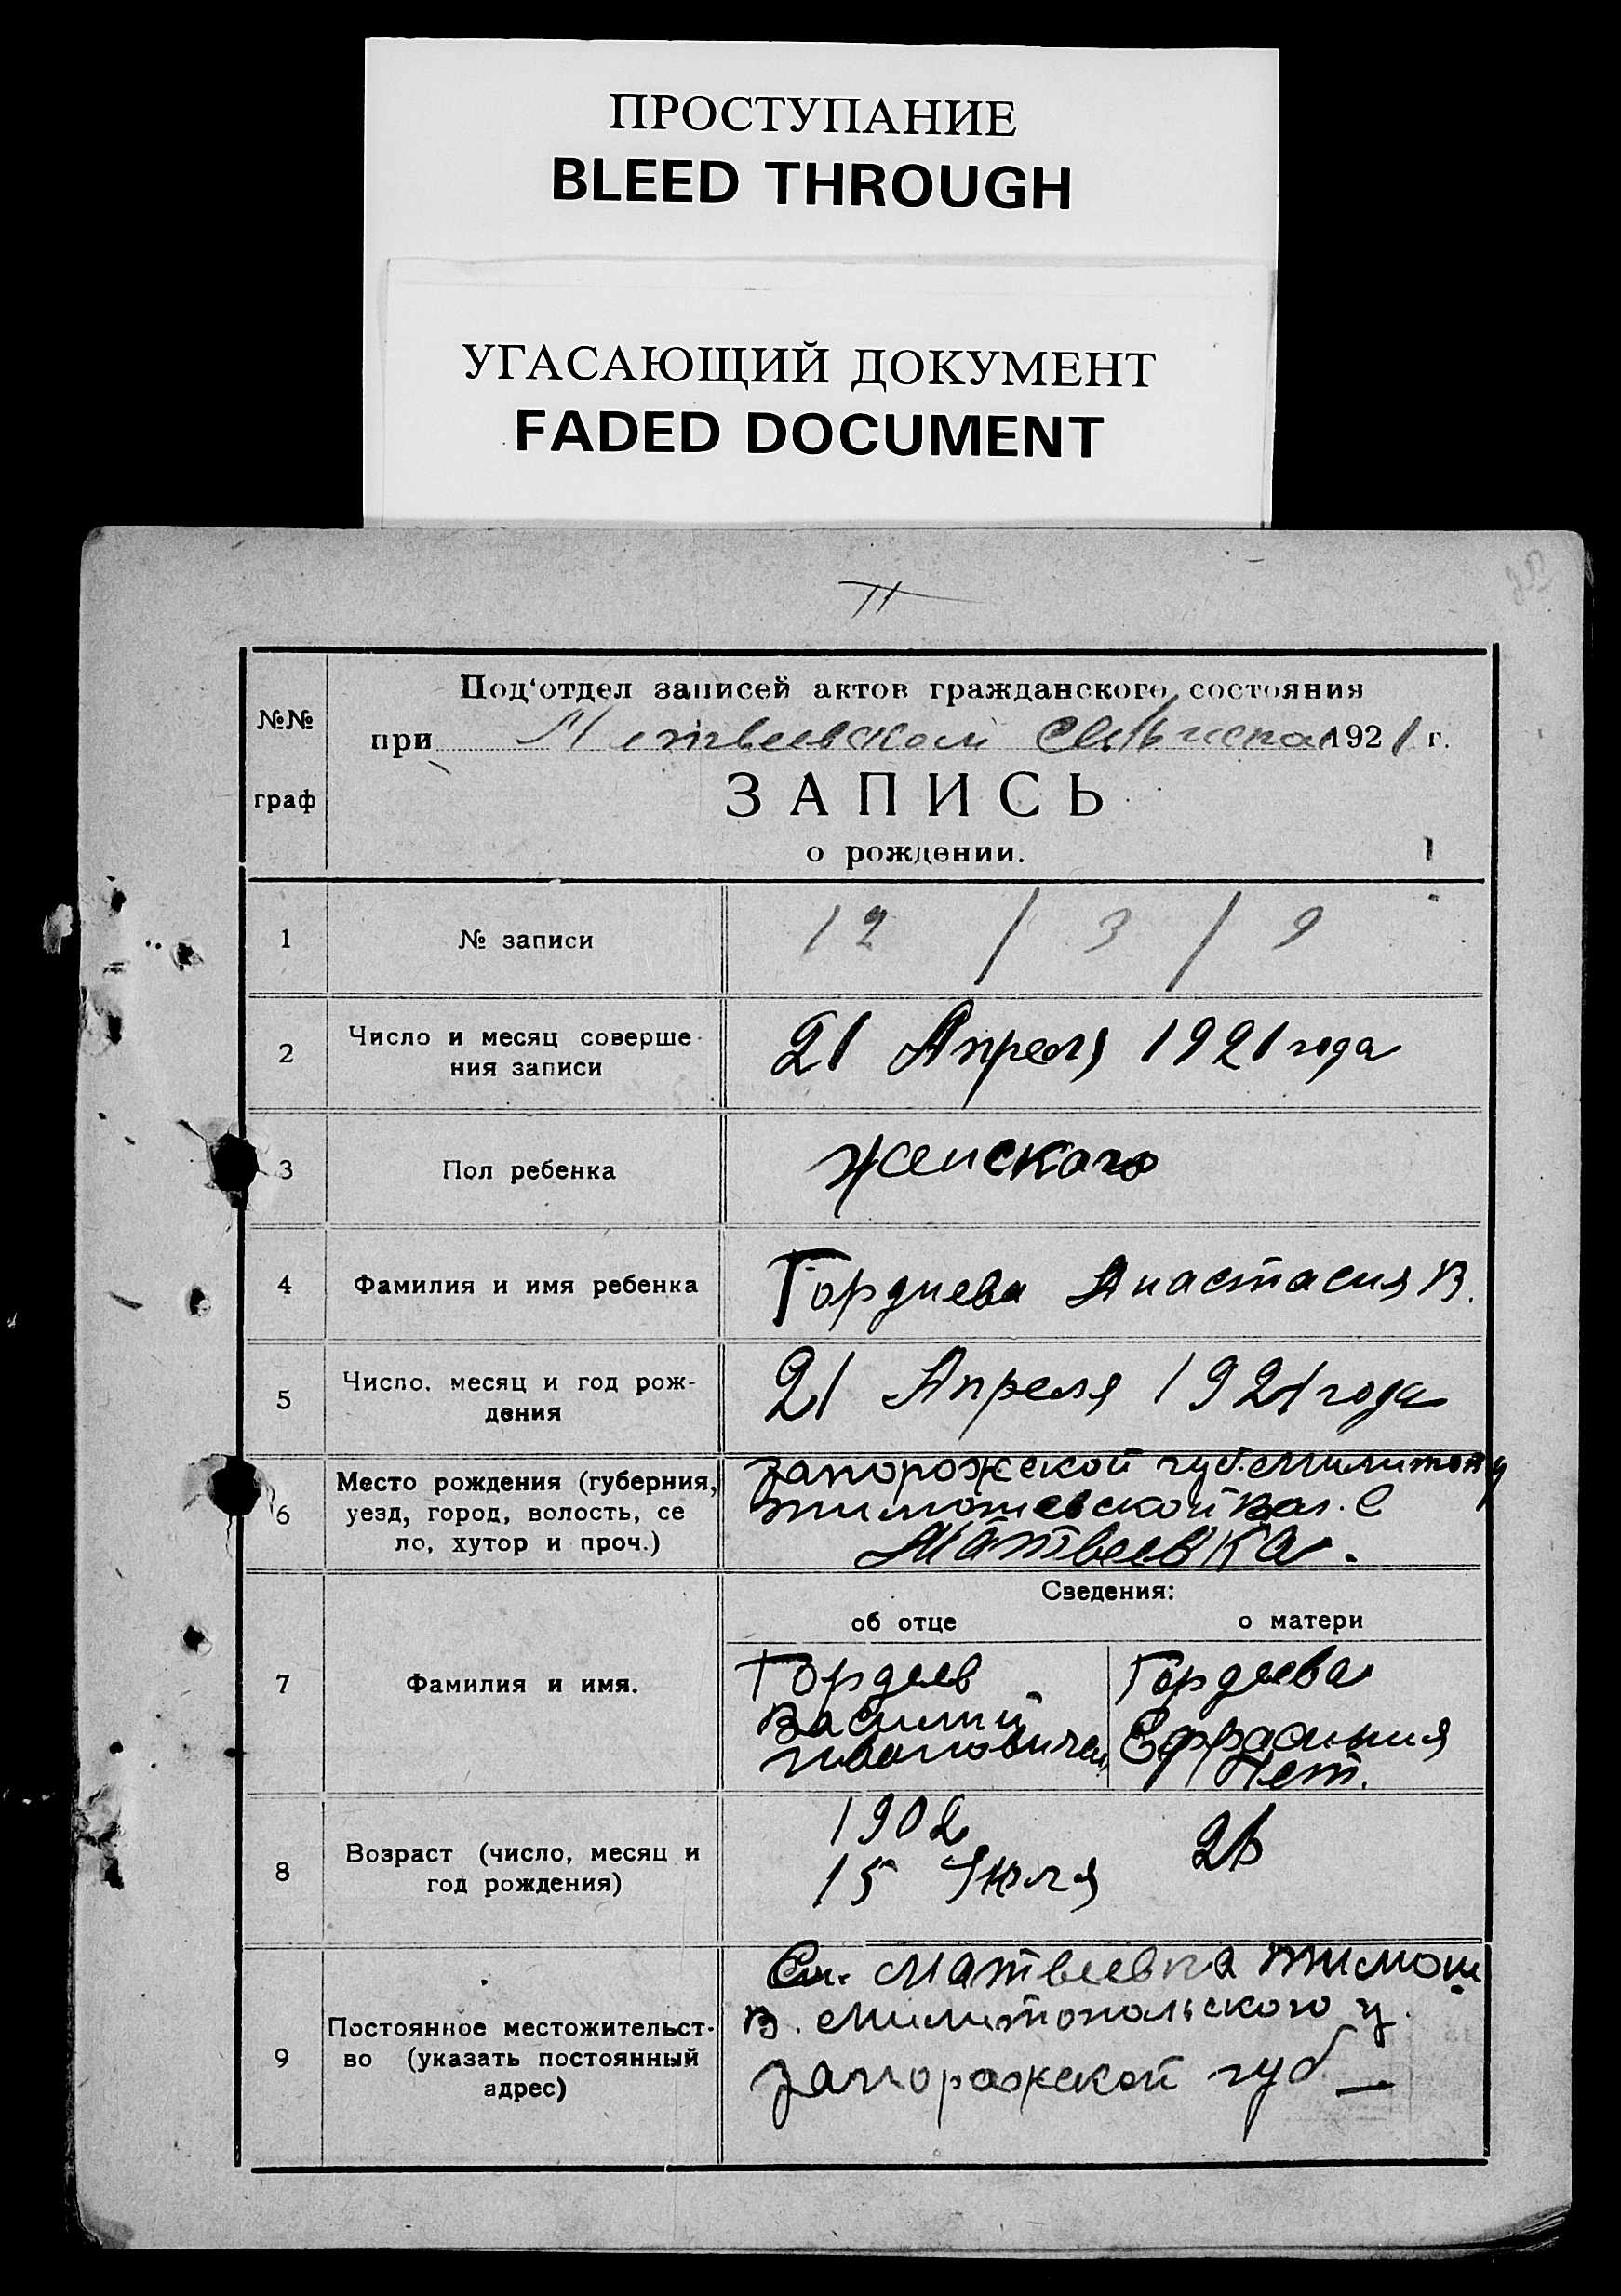 ПРОСТУПАНИЕ
BLEED THROUGH
УГАСАЮЩИЙ ДОКУМЕНТ
FADED DOCUMENT
№№ граф
Под'отдел записей актов гражданского состояния
при 1921 г.
ЗАПИСЬ
о рождении.
1 № записи 12 / 3 / 9
2 Число и месяц соверше- 21 Апреля 1921 года
ния записи
3 Пол ребенка женского
4 Фамилия и имя ребенка Гордиева Анастасия В.
5 Число, месяц и год рож- 21 Апреля 1921 года
дения
6 Место рождения (губерния, Запорожской губ. Милитоп у
уезд, город, волость, се Тимошевской вол. С
ло, хутор и проч.) Матвеевка.
Сведения:
об отце о матери
7 Фамилия и имя. Гордеев Гордеева
Василий Ефросиния
Ивановичем Пет.
8 Возраст (число, месяц и 1902
год рождения) 15 Июля
9 Постоянное местожительст- Матвеевка Тимош
во (указать постоянный В. Милитопольского у.
адрес) Запорожской губ